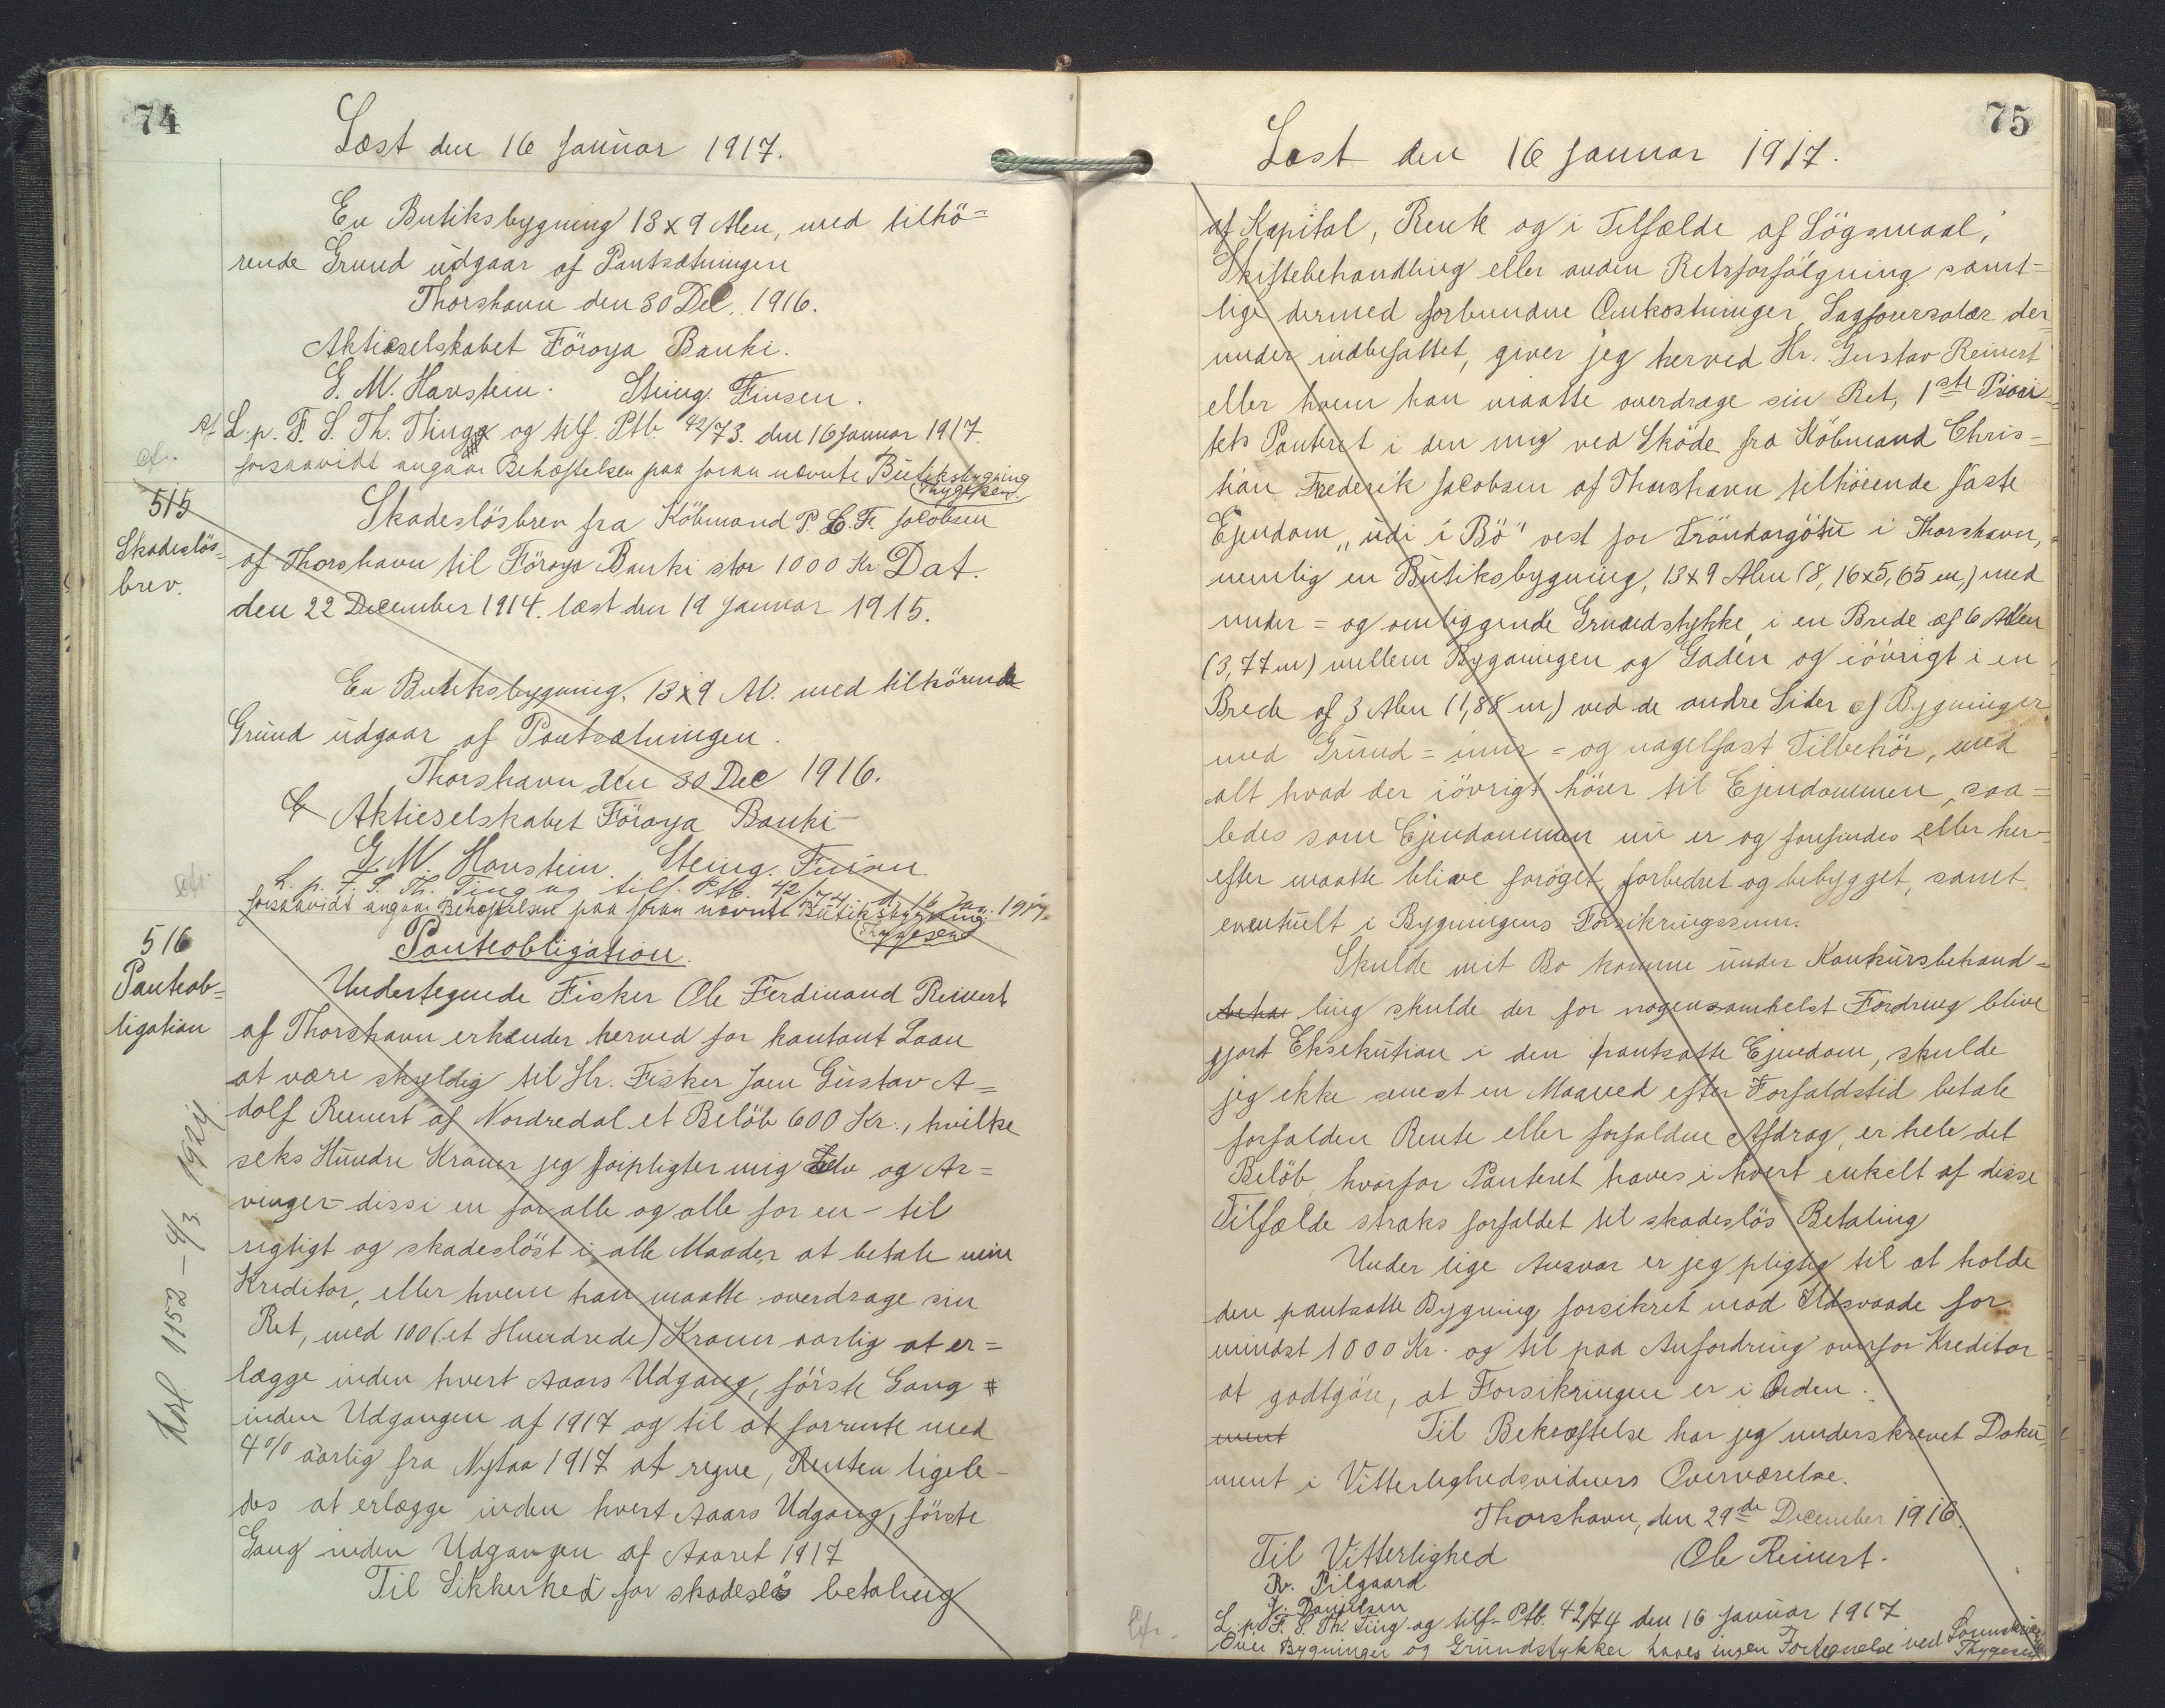 74
Læst den 16 Januar 1917.
En Butiksbygning 13 x 9 Alen, med tilhö=
rende Grund udgaar af Pantsætningen
Thorshavn den 30 Dec. 1916.
Aktieselskabet Föroya Banki.
G. M. Hanstein. Steing. Finsen.
L. p. F. S. Th. Thing og tilf. Ptb. 42/73. den 16 Januar 1917.
forsaavidt angaar Behæftelsen paa foran nævnte Butiksbygning
Thygesen
cfr.
515
Skadeslös=
brev.
Skadeslösbrev fra Köbmand P. C. Fr. Jacobsen
af Thorshavn til Föroya Banki stor 1000 Kr. Dat.
den 22 December 1914. læst den 19 Januar 1915.
En Butiksbygning, 13 x 9 Al. med tilhörende
Grund udgaar af Pantsætningen.
Thorshavn den 30 Dec 1916.
Aktieselskabet Föroya Banki
G. M. Hanstein. Steing. Finsen
L. p. F. S. Th. Ting og tilf. Ptb. 42/74 d. 16 Jan. 1917.
forsaavidt angaar Behæftelsen paa foran nævnte Butiksbygning.
Thygesen
cfr.
516
Panteob=
ligation
Panteobligation.
Undertegnede Fisker Ole Ferdinand Reinert
af Thorshavn erkender herved for kontant Laan
at være skyldig til Hr. Fisker Joen Gustav A=
dolf Reinert af Nordredal et Belöb 600 Kr., hvilke
seks Hundre Kroner jeg forpligter mig selv og Ar=
vinger - dissi en for alle og alle for en - til
rigtigt og skadeslöst i alle Maader at betale min
Kreditor, eller hvem han maatte overdrage sin
Ret, med 100 (et Hundrede) Kroner aarlig at er=
lægge inden hvert Aars Udgang, förste Gang
inden Udgangen af 1917 og til at forrente med
4% aarlig fra Nytaar 1917 at regne, Renten ligele-
des at erlægge inden hvert Aars Udgang, förste
Gang inden Udgangen af Aaret 1917
Til Sikkerhed for skadeslös betaling
1152 - 4/3 1924
75
Læst den 16 Januar 1917.
af Kapital, Rente og i Tilfælde af Lögsmaal,
Skiftebehandling eller anden Retsforfölgning samt=
lige dermed forbundne Omkostninger, Sagförersalær der=
under indbefattet, giver jeg herved Hr. Gustav Reinert
eller hvem han maatte overdrage sin Ret, 1ste Priori=
tets Panteret i den mig ved Sköde fra Köbmand Chris-
tian Frederik Jacobsen af Thorshavn tilhörende faste
Ejendom „udi í Bö" vest for Tröndargötu i Thorshavn,
nemlig en Butiksbygning, 13 x 9 Alen (8,16 x 5,65 m,) med
under= og omliggende Grundstykke, i en Brede af 6 Alen
(3,77 m) mellem Bygningen og Gaden og iövrigt i en
Brede af 3 Alen (1,88 m,) ved de andre Sider af Bygningen
med Grund= mur= og nagelfast Tilbehör, med
alt hvad der iövrigt hörer til Ejendommen, saa=
ledes som Ejendommen nu er og forefindes eller her-
efter maatte blive foröget, forbedret og bebygget, samt
eventuelt i Bygningens Forsikringssum.
Skulde mit Bo komme under Konkursbehand=
ling skulde der for nogensomhelst Fordring blive
gjort Eksekution i den pantsatte Ejendom, skulde
jeg ikke senest en Maaned efter Forfaldstid betale
forfalden Rente eller forfaldne Afdrag, er hele det
Belöb, hvorfor Panteret haves i hvert enkelt af disse
Tilfælde straks forfaldet til skadeslös Betaling
Under lige Ansvar er jeg pligtig til at holde
den pantsatte Bygning forsikret mod Ildsvaade for
mindst 1000 Kr. og til paa Anfordring overfor Kreditor
at godtgöre, at Forsikringen er i Orden.
ment Til Bekræftelse har jeg underskrevet Doku=
ment i Vitterlighedsvidners Overværelse.
Thorshavn, den 29de December 1916.
Til Vitterlighed Ole Reinert.
R. Pilgaard
J. Danielsen
L. p. F. S. Th. Ting og tilf. Ptb. 42/74 den 16 Januar 1917
Over Bygninger og Grundstykker haves ingen Fortegnelse ved
Thygesen
Cfr.